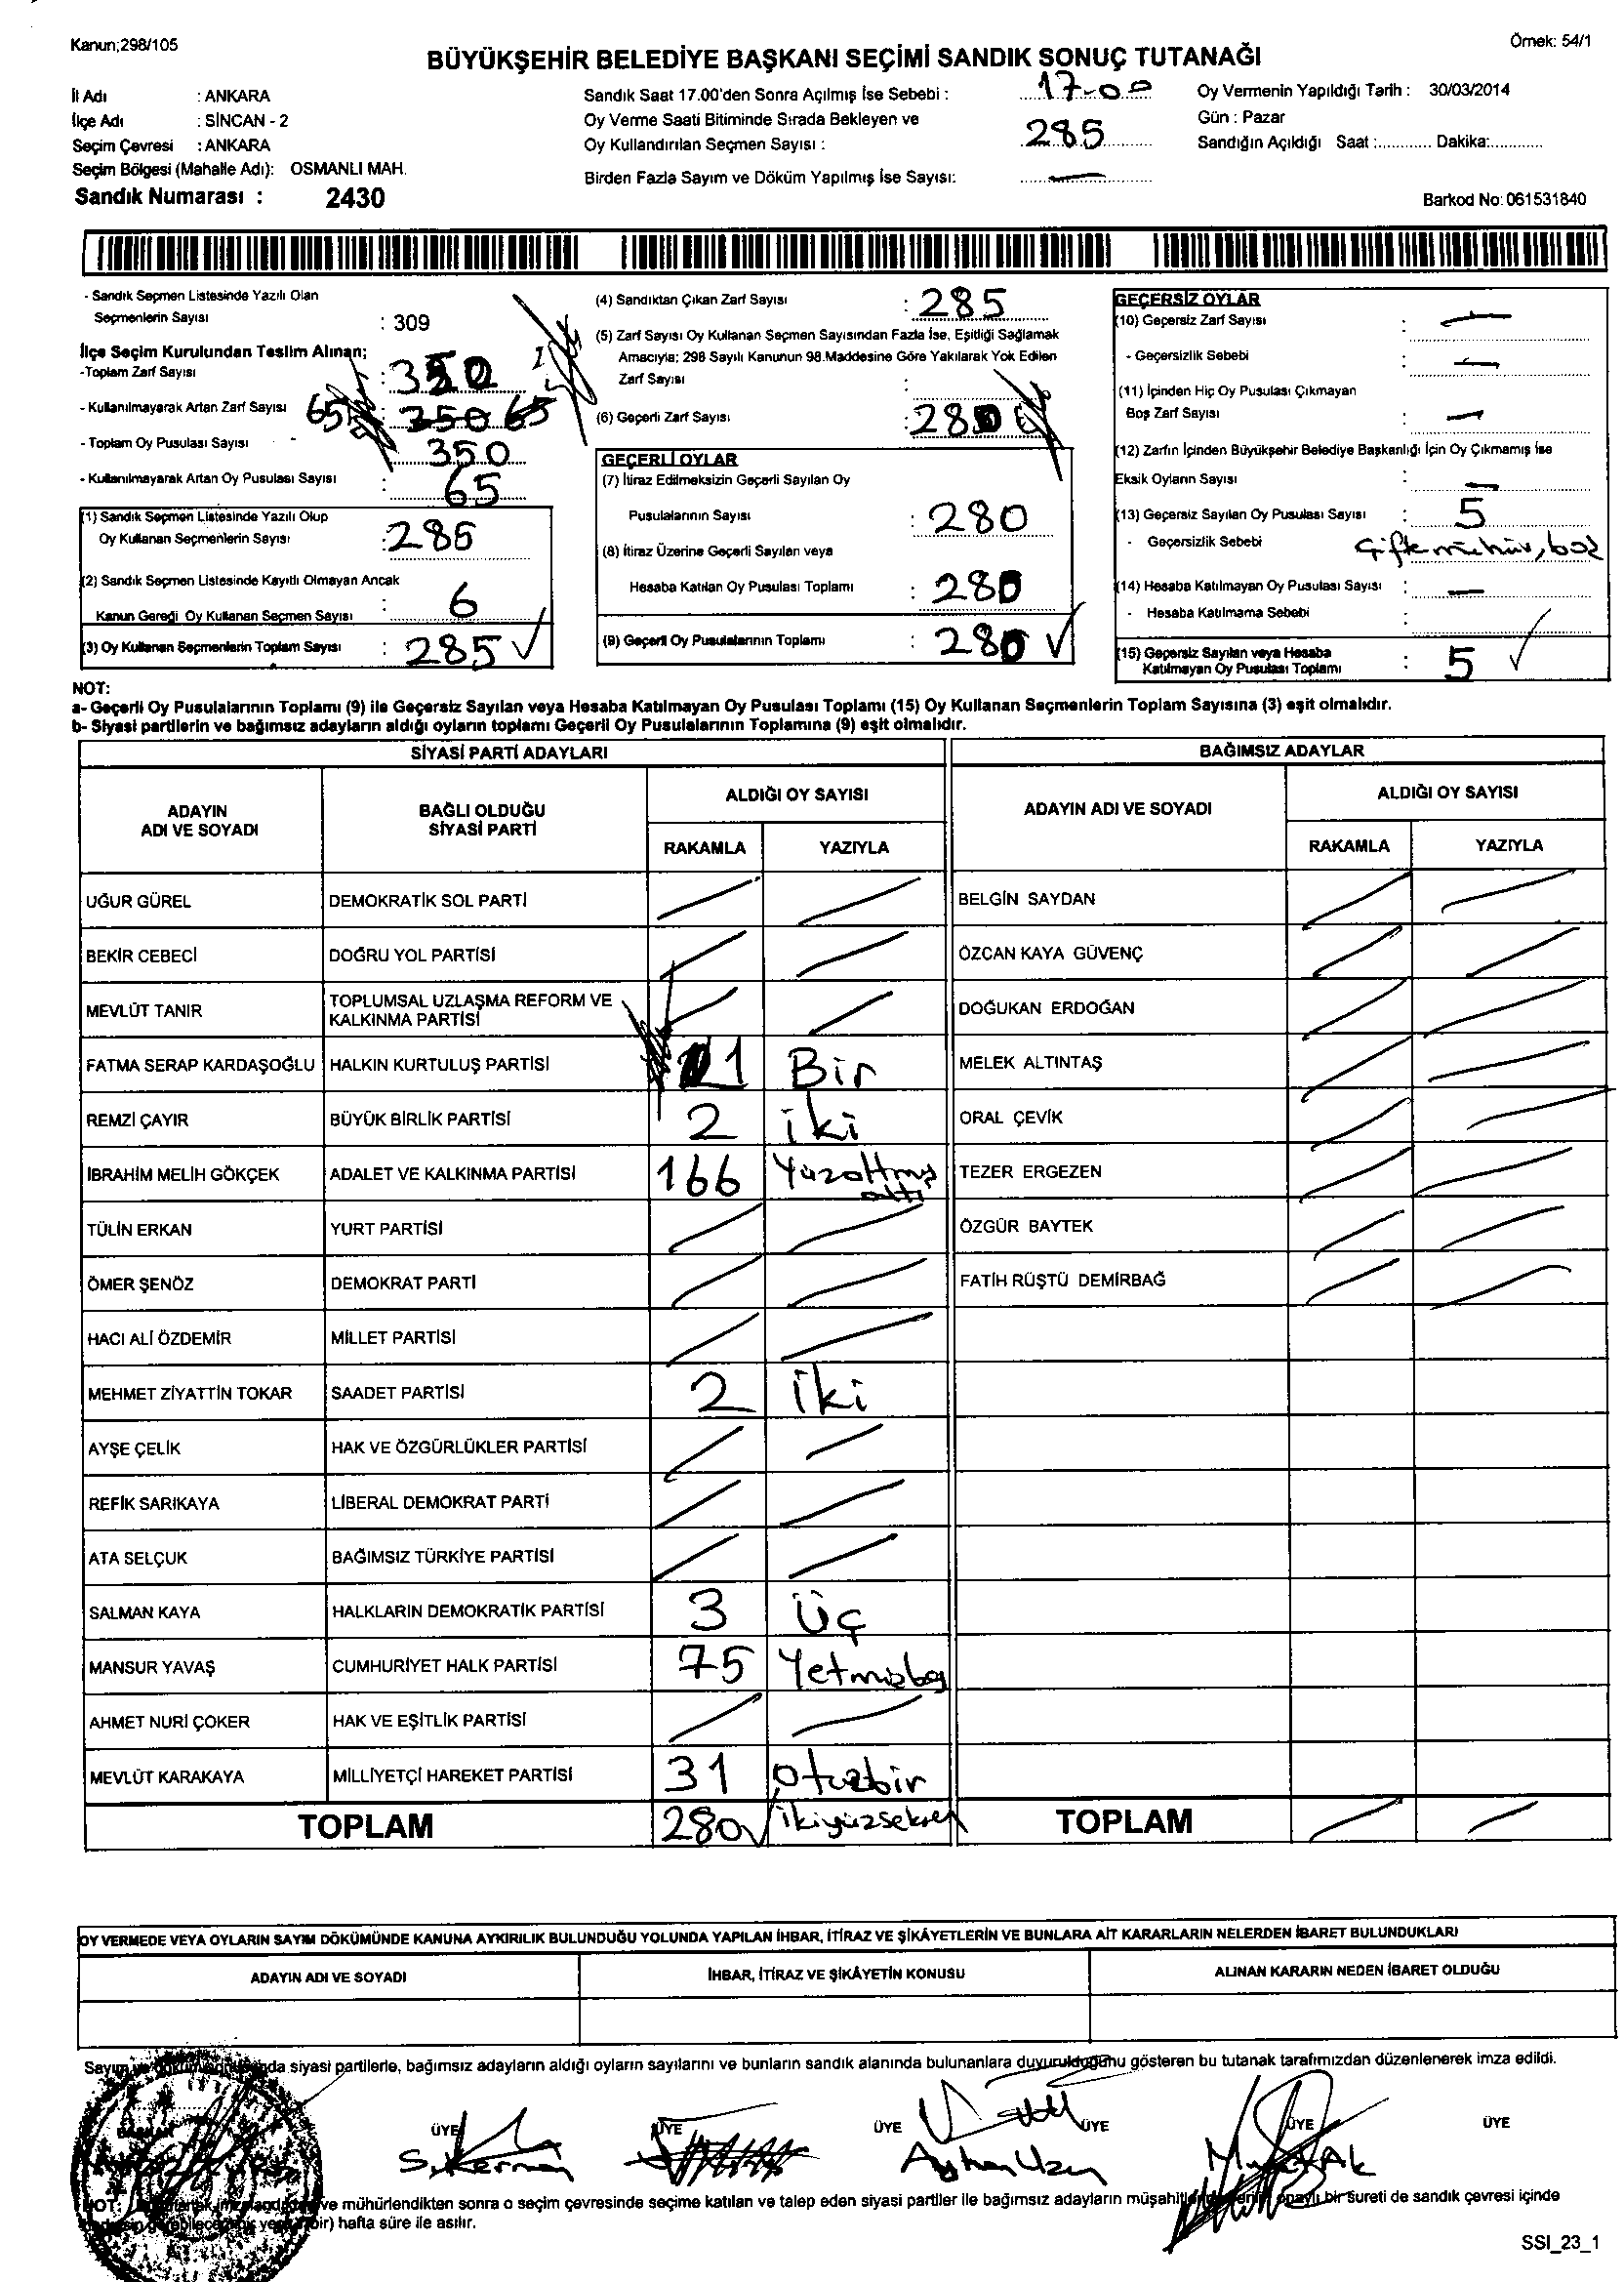 Kanun;298/105
Örnek: 54/1
BÜYÜKŞEHİR BELEDİYE BAŞKANI SEÇİMİ SANDIK SONUÇ TUTANAĞI
İl Adı : ANKARA
İlçe Adı : SİNCAN - 2
Seçim Çevresi : ANKARA
Seçim Bölgesi (Mahalle Adı): OSMANLI MAH.
Sandık Numarası : 2430
Sandık Saat 17.00'den Sonra Açılmış İse Sebebi : 17-00
Oy Verme Saati Bitiminde Sırada Bekleyen ve
Oy Kullandırılan Seçmen Sayısı : 285
Birden Fazla Sayım ve Döküm Yapılmış İse Sayısı: —
Oy Vermenin Yapıldığı Tarih : 30/03/2014
Gün : Pazar
Sandığın Açıldığı Saat :............ Dakika:............
Barkod No: 061531840
- Sandık Seçmen Listesinde Yazılı Olan
Seçmenlerin Sayısı : 309
İlçe Seçim Kurulundan Teslim Alınan;
-Toplam Zarf Sayısı : 350
- Kullanılmayarak Artan Zarf Sayısı 65 : 350 65
- Toplam Oy Pusulası Sayısı 350
- Kullanılmayarak Artan Oy Pusulası Sayısı : 65
(1) Sandık Seçmen Listesinde Yazılı Olup
Oy Kullanan Seçmenlerin Sayısı : 285
(2) Sandık Seçmen Listesinde Kayıtlı Olmayan Ancak
Kanun Gereği Oy Kullanan Seçmen Sayısı : 6
(3) Oy Kullanan Seçmenlerin Toplam Sayısı : 285 ✓
(4) Sandıktan Çıkan Zarf Sayısı : 285
(5) Zarf Sayısı Oy Kullanan Seçmen Sayısından Fazla İse, Eşitliği Sağlamak
Amacıyla; 298 Sayılı Kanunun 98.Maddesine Göre Yakılarak Yok Edilen
Zarf Sayısı :
(6) Geçerli Zarf Sayısı : 280
GEÇERLİ OYLAR
(7) İtiraz Edilmeksizin Geçerli Sayılan Oy
Pusulalarının Sayısı : 280
(8) İtiraz Üzerine Geçerli Sayılan veya
Hesaba Katılan Oy Pusulası Toplamı : 280
(9) Geçerli Oy Pusulalarının Toplamı : 280 ✓
GEÇERSİZ OYLAR
(10) Geçersiz Zarf Sayısı : —
- Geçersizlik Sebebi : —
(11) İçinden Hiç Oy Pusulası Çıkmayan
Boş Zarf Sayısı : —
(12) Zarfın İçinden Büyükşehir Belediye Başkanlığı İçin Oy Çıkmamış İse
Eksik Oyların Sayısı : —
(13) Geçersiz Sayılan Oy Pusulası Sayısı : 5
- Geçersizlik Sebebi Çift mühür,
(14) Hesaba Katılmayan Oy Pusulası Sayısı : —
- Hesaba Katılmama Sebebi
(15) Geçersiz Sayılan veya Hesaba
Katılmayan Oy Pusulası Toplamı : 5 ✓
NOT:
a- Geçerli Oy Pusulalarının Toplamı (9) ile Geçersiz Sayılan veya Hesaba Katılmayan Oy Pusulası Toplamı (15) Oy Kullanan Seçmenlerin Toplam Sayısına (3) eşit olmalıdır.
b- Siyasi partilerin ve bağımsız adayların aldığı oyların toplamı Geçerli Oy Pusulalarının Toplamına (9) eşit olmalıdır.
SİYASİ PARTİ ADAYLARI
ADAYIN ADI VE SOYADI BAĞLI OLDUĞU SİYASİ PARTİ ALDIĞI OY SAYISI
RAKAMLA YAZIYLA
UĞUR GÜREL DEMOKRATİK SOL PARTİ
BEKİR CEBECİ DOĞRU YOL PARTİSİ
MEVLÜT TANIR TOPLUMSAL UZLAŞMA REFORM VE KALKINMA PARTİSİ
FATMA SERAP KARDAŞOĞLU HALKIN KURTULUŞ PARTİSİ 1 Bir
REMZİ ÇAYIR BÜYÜK BİRLİK PARTİSİ 2 iki
İBRAHİM MELİH GÖKÇEK ADALET VE KALKINMA PARTİSİ 166 Yüzaltmış altı
TÜLİN ERKAN YURT PARTİSİ
ÖMER ŞENÖZ DEMOKRAT PARTİ
HACI ALİ ÖZDEMİR MİLLET PARTİSİ
MEHMET ZİYATTİN TOKAR SAADET PARTİSİ 2 iki
AYŞE ÇELİK HAK VE ÖZGÜRLÜKLER PARTİSİ
REFİK SARIKAYA LİBERAL DEMOKRAT PARTİ
ATA SELÇUK BAĞIMSIZ TÜRKİYE PARTİSİ
SALMAN KAYA HALKLARIN DEMOKRATİK PARTİSİ 3 Üç
MANSUR YAVAŞ CUMHURİYET HALK PARTİSİ 75 Yetmişbeş
AHMET NURİ ÇOKER HAK VE EŞİTLİK PARTİSİ
MEVLÜT KARAKAYA MİLLİYETÇİ HAREKET PARTİSİ 31 Otuzbir
TOPLAM 280 ✓ ikiyüzseksen
BAĞIMSIZ ADAYLAR
ADAYIN ADI VE SOYADI ALDIĞI OY SAYISI
RAKAMLA YAZIYLA
BELGİN SAYDAN
ÖZCAN KAYA GÜVENÇ
DOĞUKAN ERDOĞAN
MELEK ALTINTAŞ
ORAL ÇEVİK
TEZER ERGEZEN
ÖZGÜR BAYTEK
FATİH RÜŞTÜ DEMİRBAĞ
TOPLAM
OY VERMEDE VEYA OYLARIN SAYIM DÖKÜMÜNDE KANUNA AYKIRILIK BULUNDUĞU YOLUNDA YAPILAN İHBAR, İTİRAZ VE ŞİKÂYETLERİN VE BUNLARA AİT KARARLARIN NELERDEN İBARET BULUNDUKLARI
ADAYIN ADI VE SOYADI İHBAR, İTİRAZ VE ŞİKÂYETİN KONUSU ALINAN KARARIN NEDEN İBARET OLDUĞU
Sayım siyasi partilerle, bağımsız adayların aldığı oyların sayılarını ve bunların sandık alanında bulunanlara duyurulduğunu gösteren bu tutanak tarafımızdan düzenlenerek imza edildi.
ÜYE ÜYE ÜYE ÜYE ÜYE ÜYE
S. Ayhan Uzun
NOT: ve mühürlendikten sonra o seçim çevresinde seçime katılan ve talep eden siyasi partiler ile bağımsız adayların bir sureti de sandık çevresi içinde
hafta süre ile asılır.
SSI_23_1